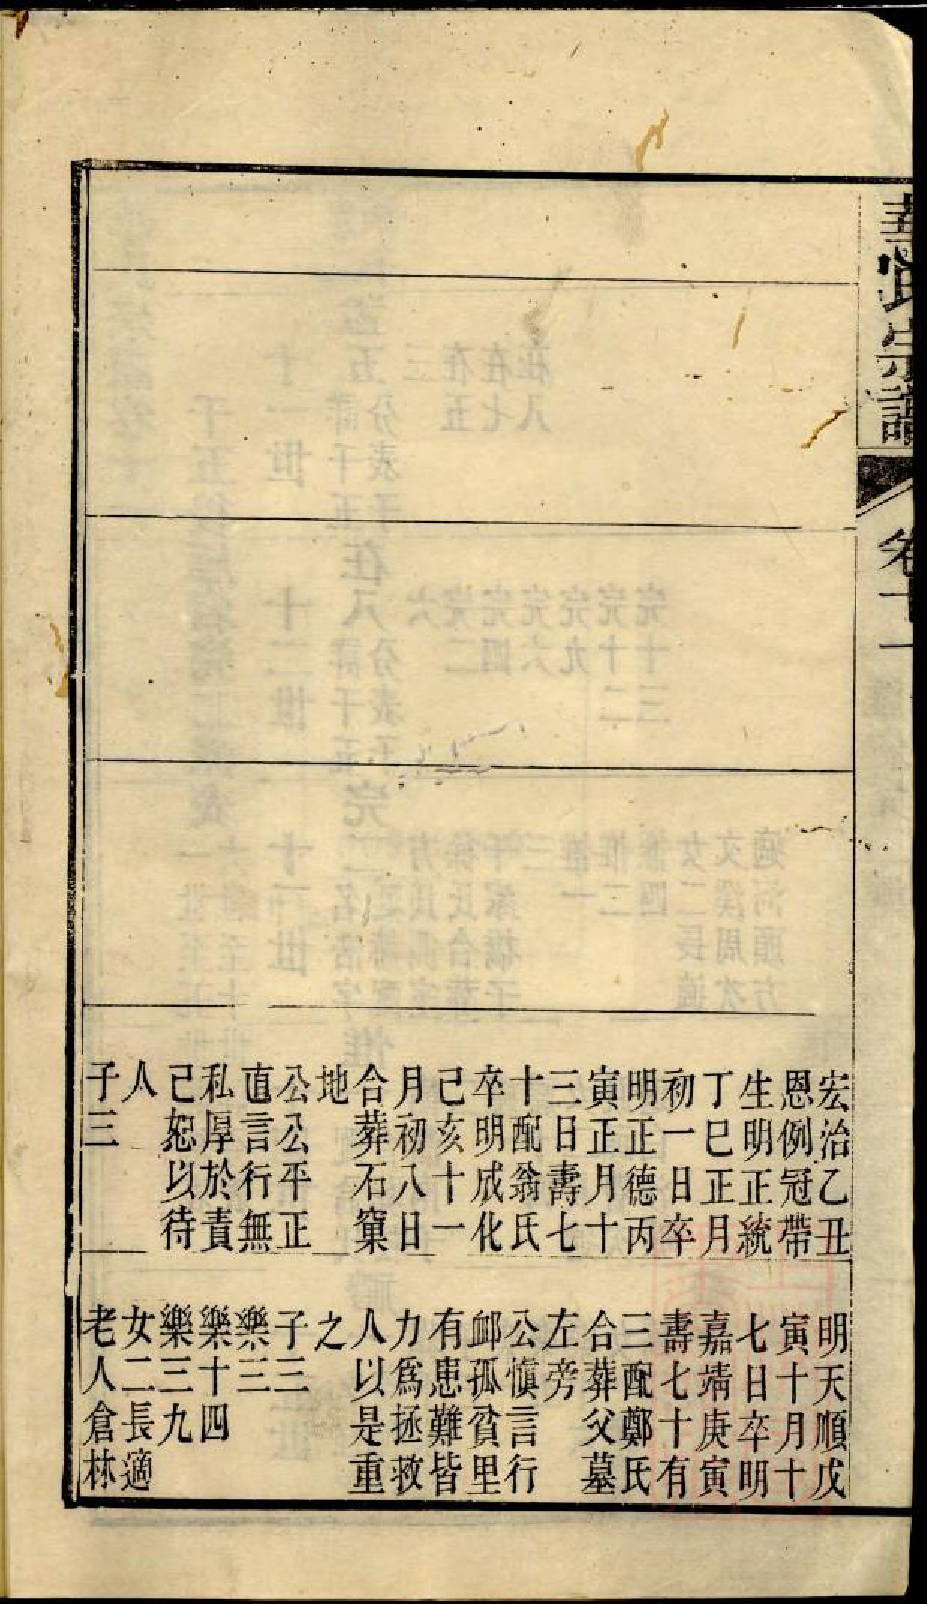 宗譜
卷十一
宏治乙丑
恩例冠帶
生明正統
丁巳正月
初一日卒
明正德丙
寅正月十
三日壽七
十配翁氏
卒明成化
己亥十一
月初八日
合葬石窠
地
公公平正
直言行無
私厚於責
己恕以待
人
子三
明天順戊
寅十月十
七日卒明
嘉靖庚寅
壽七十有
三配鄭氏
合葬父墓
左旁
公愼言行
卹孤貧里
有患難皆
力爲拯救
人以是重
之
子三
樂三
樂十四
樂三九
女二長適
老人倉林